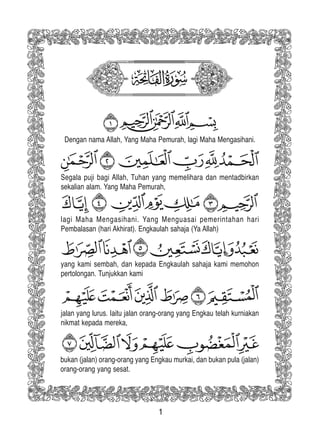 سُورَةُ الْفَاتِحَةِ
بِسْمِ ٱللَّهِ ٱلرَّحْمَٰنِ ٱلرَّحِيمِ ١
Dengan nama Allah, Yang Maha Pemurah, lagi Maha Mengasihani.
ٱلْحَمْدُ لِلَّهِ رَبِّ ٱلْعَٰلَمِينَ ٢ ٱلرَّحْمَٰنِ
Segala puji bagi Allah, Tuhan yang memelihara dan mentadbirkan
sekalian alam. Yang Maha Pemurah,
ٱلرَّحِيمِ ٣ مَٰلِكِ يَوْمِ ٱلدِّينِ ٤ إِيَّاكَ
lagi Maha Mengasihani. Yang Menguasai pemerintahan hari
Pembalasan (hari Akhirat). Engkaulah sahaja (Ya Allah)
نَعْبُدُ وَإِيَّاكَ نَسْتَعِينُ ٥ ٱهْدِنَا ٱلصِّرَٰطَ
yang kami sembah, dan kepada Engkaulah sahaja kami memohon
pertolongan. Tunjukkan kami
ٱلْمُسْتَقِيمَ ٦ صِرَٰطَ ٱلَّذِينَ أَنْعَمْتَ عَلَيْهِمْ
jalan yang lurus. Iaitu jalan orang-orang yang Engkau telah kurniakan
nikmat kepada mereka,
غَيْرِ ٱلْمَغْضُوبِ عَلَيْهِمْ وَلَا ٱلضَّآلِّينَ ٧
bukan (jalan) orang-orang yang Engkau murkai, dan bukan pula (jalan)
orang-orang yang sesat.
1